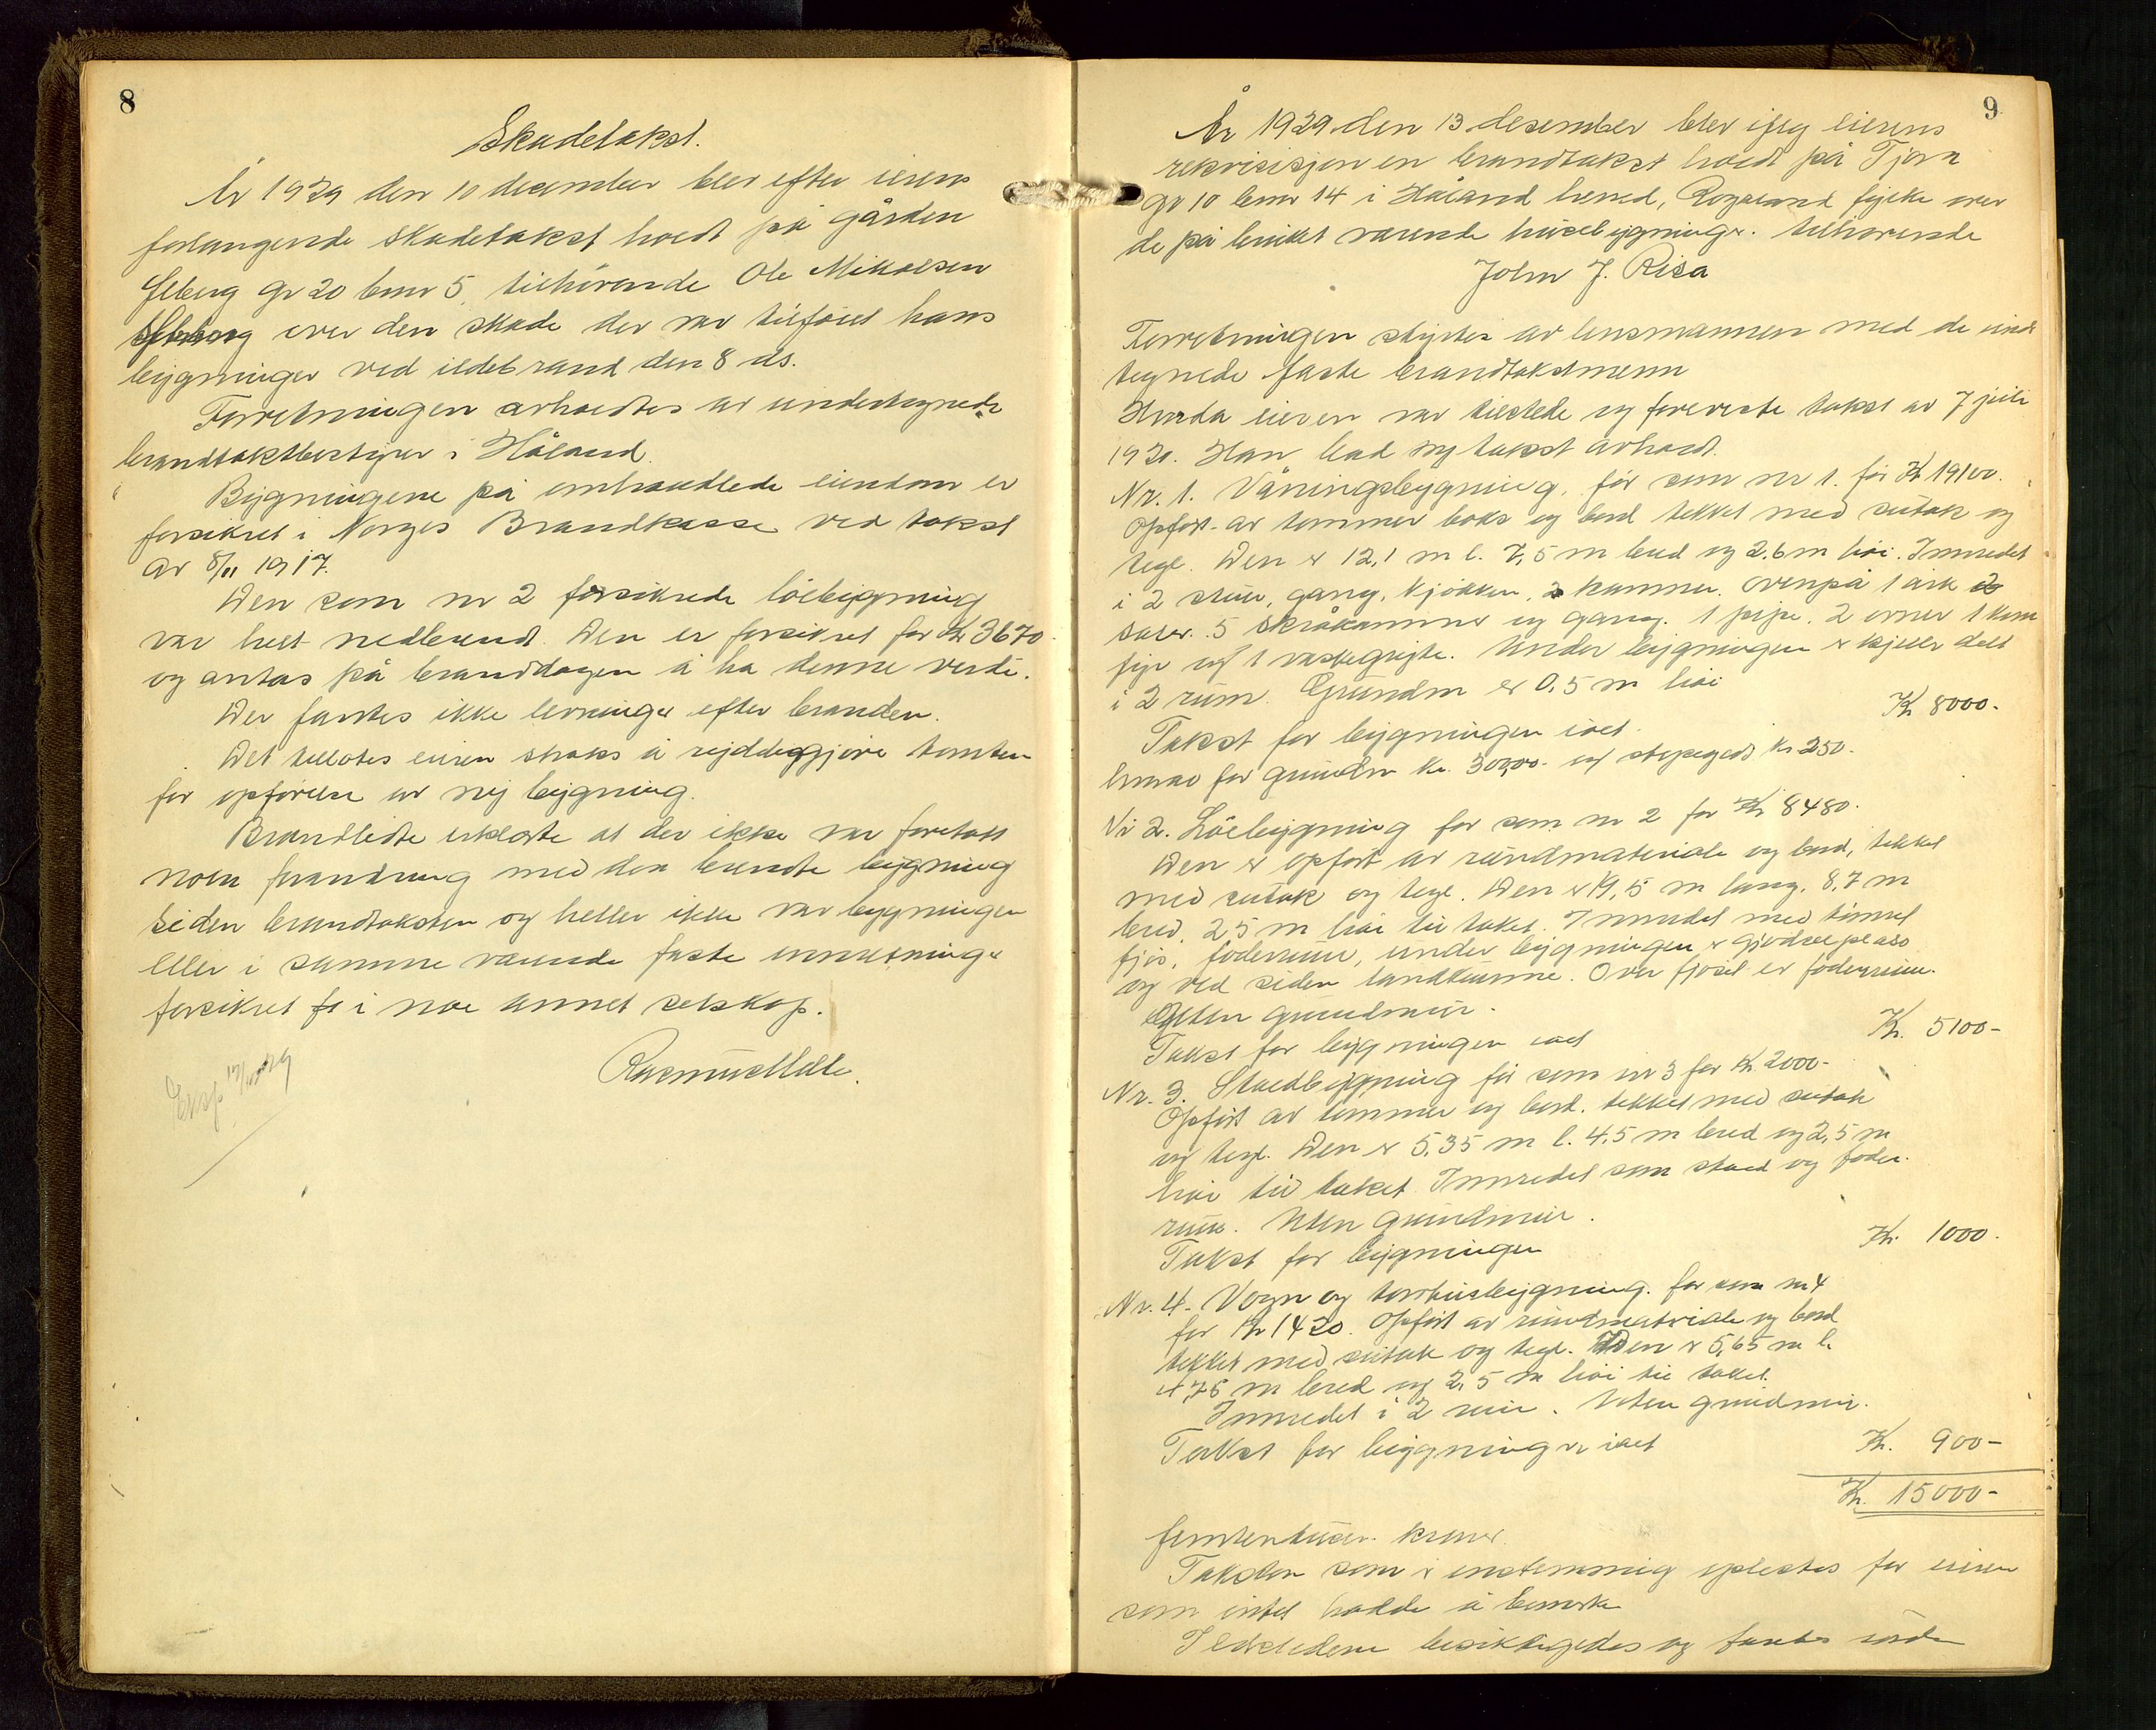 8
Skadetakst.
År 1929 den 10 december blev efter eierens
forlangende skadetakst holdt på gården
gr 20 bnr 5, tilhörende Ole Mikalsen
over den skade der var tilföiet hans
bygninger ved ildebrand den 8 ds.
Forretningen avholdtes av undertegnede
brandtakstbestyrer i Håland.
Bygningene på omhandlede eiendom er
forsikret i Norges Brandkasse ved takst
av 8/11 1917.
Den som nr 2 forsikrede löebygning
var helt nedbrendt. Den er forsikret for Kr 3670.
og antas på branddagen å ha denne verdi.
Der fantes ikke levninger efter branden.
Det tillotes eieren straks å ryddeggjöre tomten
for opförelse av ny bygning.
Brandlidte erklærte at der ikke var foretatt
noen forandring med den brendte bygning
siden brandtaksten og heller ikke var bygningen
eller i samme værende faste innretninger
forsikret i noe annet selskap.
Rasmus
9
År 1929 den 13 desember blev ifölg eierens
rekvisisjon en brandtakst holdt på Tjora
gr 10 bnr 14 i Håland herred, Rogaland fylke over
de på bruket værende husebygninger. tilhörende
John J. Risa
Forretningen styrtes av lensmannen med de under
tegnede faste brandtakstmenn
eieren var tilstede og foreviste takst av 7 juli
1920. Han bad ny takst avholdt.
Nr. 1. Våningsbygning, för som nr 1. for Kr 19100.
Opfört av tömmer boks og bord tekket med sutak og
tegl. Den er 12,1 m l. 7,5 m bred og 2,6 m höi. Innredet
i 2 stuer, gang, kjökken, 2 kammer. Ovenpå 1 ark
saler. 5 skråkammer og gang. 1 pipe. 2 ovner 1 kom
fyr og 1 vaskegryte. Under bygningen er kjeller delt
i 2 rum. Grundm er 0,5 m höi
Takst for bygningen ialt Kr 8000.
herav for grundm kr. 3000,00 og kr 250.
Nr 2. Löebygning för som nr 2 for Kr 8480.
Den er opfört av rundmateriale og bord, tekket
med sutak og tegl. Den er 19,5 m lang, 8,7 m
bred, 2,5 m höi til taket. Innredet med
fjös, foderrum, under bygningen er gjödselplass
og ved siden landkumme. Over fjöset er foderrum.
Uten grundmur.
Takst for bygningen ialt Kr. 5100-
Nr. 3. Staldbygning för som nr 3 for Kr 2000-
Opfört av tömmer og bord, tekket med sutak
og tegl. Den er 5,35 m l. 4,5 m bred og 2,5 m
höi til taket. Innredet som stald og foder.
rum. Uten grundmur.
Takst for bygningen Kr. 1000.
Nr. 4. Vogn og torvhusbygning. för som nr 4
for Kr 1420. Opfört av rundmateriale og bord
tekket med sutak og tegl. Den er 5,65 m l.
4,75 m bred og 2,5 m höi til taket.
Innredet i 2 rum. Uten grundmur.
Takst for bygningen ialt Kr. 900-
Kr. 15000-
femtentusen kroner
Taksten som er enstemmig oplestes for eieren
som intet hadde å bemerke
Ildstedene besiktigedes og fantes i orden